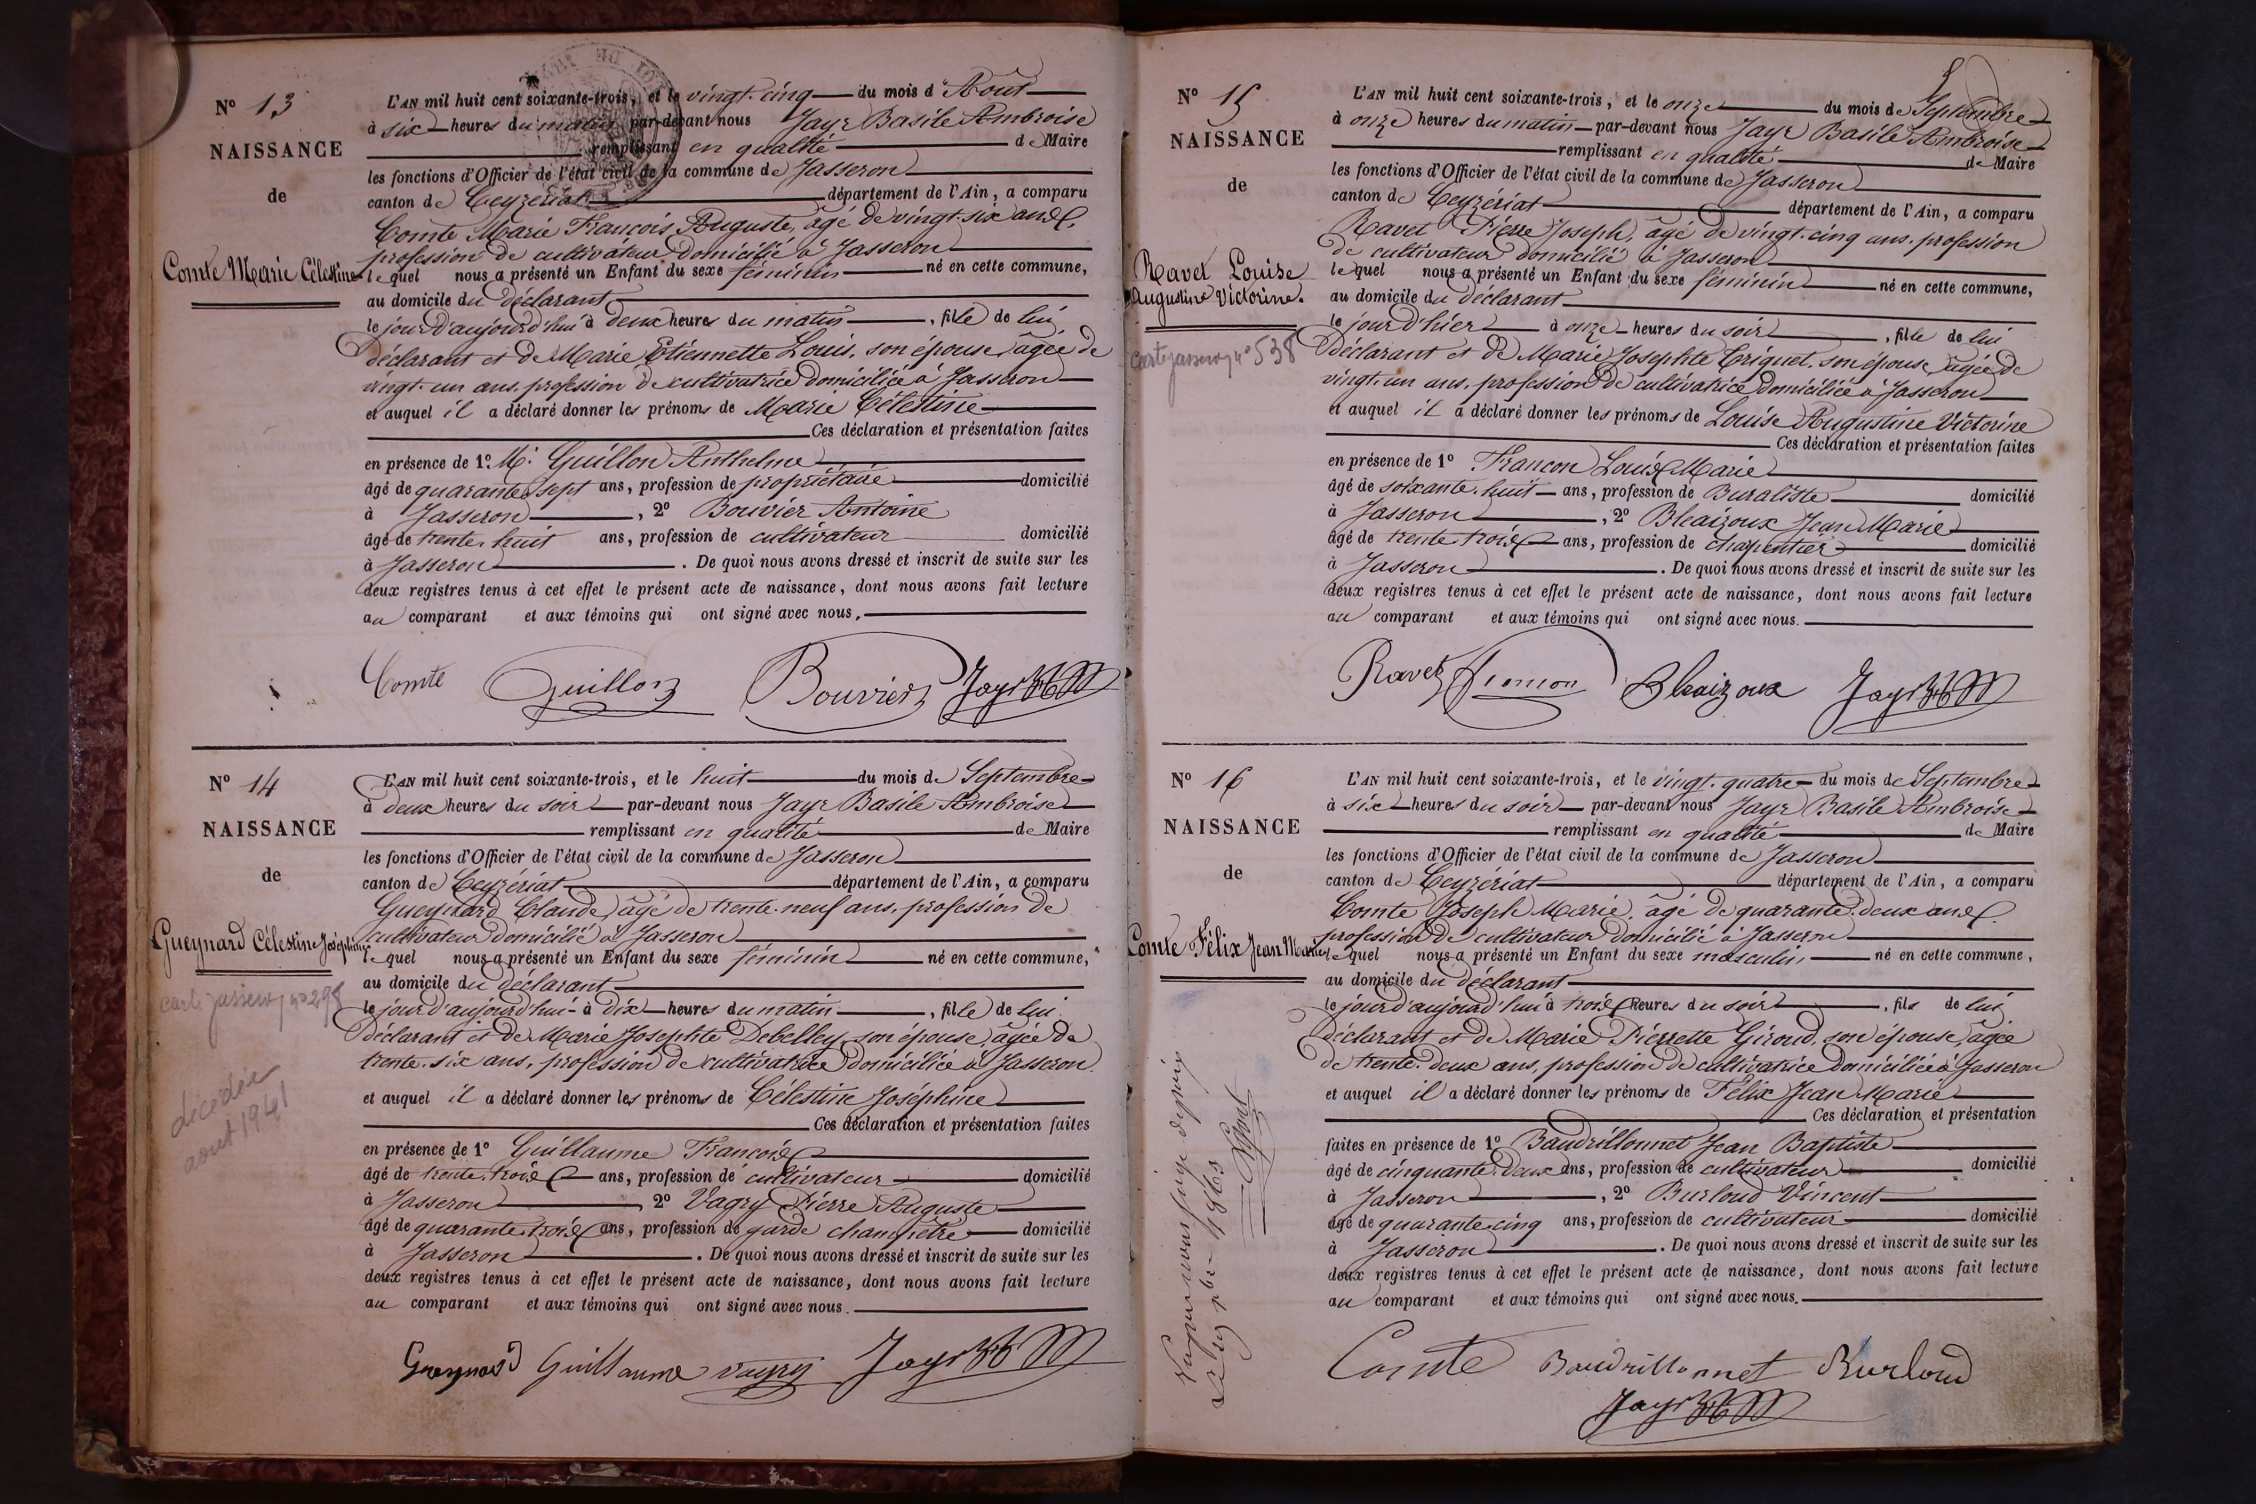 N° 13
NAISSANCE
de
Comte Marie Célestine
L'AN mil huit cent soixante-trois, et le vingt-cinq du mois d'Août
à six heures du matin par-devant nous Jayr Basile Ambroise
remplissant en qualité de Maire
les fonctions d'Officier de l'état civil de la commune de Jasseron
canton de Ceyzériat département de l'Ain, a comparu
Comte Marie François Auguste, âgé de vingt-six ans,
profession de cultivateur domicilié à Jasseron
lequel nous a présenté un Enfant du sexe féminin né en cette commune,
au domicile du déclarant
le jour d'aujourd'hui à deux heures du matin, fille de lui
déclarant et de Marie Etiennette Louis, son épouse, âgée de
vingt-un ans, profession de cultivatrice domiciliée à Jasseron
et auquel il a déclaré donner les prénoms de Marie Célestine
Ces déclaration et présentation faites
en présence de 1° Mr Guillon Anthelme
âgé de quarante sept ans, profession de propriétaire domicilié
à Jasseron, 2° Bouvier Antoine
âgé de trente-huit ans, profession de cultivateur domicilié
à Jasseron. De quoi nous avons dressé et inscrit de suite sur les
deux registres tenus à cet effet le présent acte de naissance, dont nous avons fait lecture
au comparant et aux témoins qui ont signé avec nous.
Comte Guillon Bouvier Jayr
N° 14
NAISSANCE
de
Gueynard Célestine Joséphine
carte jasseron n° 298
décédée
aout 1941
L'AN mil huit cent soixante-trois, et le huit du mois de Septembre
à deux heures du soir par-devant nous Jayr Basile Ambroise
remplissant en qualité de Maire
les fonctions d'Officier de l'état civil de la commune de Jasseron
canton de Ceyzériat département de l'Ain, a comparu
Gueynard Claude, âgé de trente-neuf ans, profession de
cultivateur domicilié à Jasseron
lequel nous a présenté un Enfant du sexe féminin né en cette commune,
au domicile du déclarant
le jour d'aujourd'hui à dix heures du matin, fille de lui
déclarant et de Marie Josephte Debelley, son épouse, âgée de
trente-six ans, profession de cultivatrice domiciliée à Jasseron
et auquel il a déclaré donner les prénoms de Célestine Joséphine
Ces déclaration et présentation faites
en présence de 1° Guillaume François
âgé de trente-trois ans, profession de cultivateur domicilié
à Jasseron, 2° Vagry Pierre Auguste
âgé de quarante-trois ans, profession de garde champêtre domicilié
à Jasseron. De quoi nous avons dressé et inscrit de suite sur les
deux registres tenus à cet effet le présent acte de naissance, dont nous avons fait lecture
au comparant et aux témoins qui ont signé avec nous.
Gueynard Guillaume Vagry Jayr
N° 15
NAISSANCE
de
Ravet Louise
Augustine Victorine.
carte jasseron n° 538
L'AN mil huit cent soixante-trois, et le onze du mois de Septembre
à onze heures du matin par-devant nous Jayr Basile Ambroise
remplissant en qualité de Maire
les fonctions d'Officier de l'état civil de la commune de Jasseron
canton de Ceyzériat département de l'Ain, a comparu
Ravet Pierre Joseph, âgé de vingt-cinq ans, profession
de cultivateur domicilié à Jasseron
lequel nous a présenté un Enfant du sexe féminin né en cette commune,
au domicile du déclarant
le jour d'hier à onze heures du soir, fille de lui
déclarant et de Marie Josephte Criquet, son épouse, âgée de
vingt-un ans, profession de cultivatrice domiciliée à Jasseron
et auquel il a déclaré donner les prénoms de Louise Augustine Victorine
Ces déclaration et présentation faites
en présence de 1° Francon Louis Marie
âgé de soixante-huit ans, profession de Buraliste domicilié
à Jasseron, 2° Bleaizoux Jean Marie
âgé de trente trois ans, profession de charpentier domicilié
à Jasseron. De quoi nous avons dressé et inscrit de suite sur les
deux registres tenus à cet effet le présent acte de naissance, dont nous avons fait lecture
au comparant et aux témoins qui ont signé avec nous.
Ravet Francon Bleaizoux Jayr
N° 16
NAISSANCE
de
Comte Félix Jean Marie
L'AN mil huit cent soixante-trois, et le vingt-quatre du mois de Septembre
à six heures du soir par-devant nous Jayr Basile Ambroise
remplissant en qualité de Maire
les fonctions d'Officier de l'état civil de la commune de Jasseron
canton de Ceyzériat département de l'Ain, a comparu
Comte Joseph Marie, âgé de quarante-deux ans,
profession de cultivateur domicilié à Jasseron
lequel nous a présenté un Enfant du sexe masculin né en cette commune,
au domicile du déclarant
le jour d'aujourd'hui à trois heures du soir, fils de lui
déclarant et de Marie Pierrette Giroud, son épouse, âgée
de trente-deux ans, profession de cultivatrice domiciliée à Jasseron
et auquel il a déclaré donner les prénoms de Félix Jean Marie
Ces déclaration et présentation
faites en présence de 1° Baudrillonnet Jean Baptiste
âgé de cinquante-deux ans, profession de cultivateur domicilié
à Jasseron, 2° Burloud Vincent
âgé de quarante-cinq ans, profession de cultivateur domicilié
à Jasseron. De quoi nous avons dressé et inscrit de suite sur les
deux registres tenus à cet effet le présent acte de naissance, dont nous avons fait lecture
au comparant et aux témoins qui ont signé avec nous.
Comte Baudrillonnet Burloud
Jayr